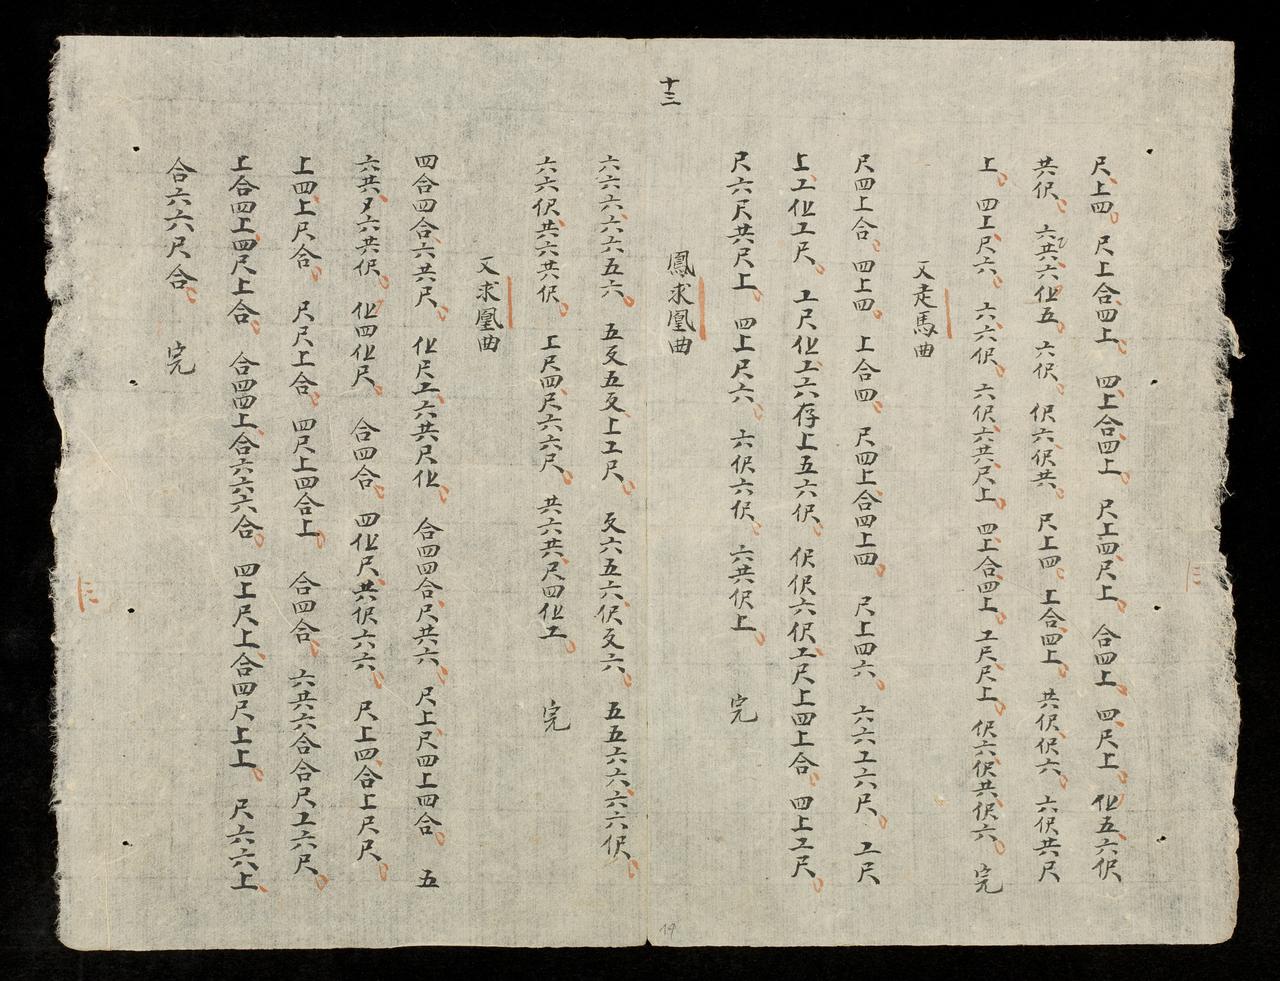 十三
尺上四 尺上合四上 四上合四上 尺上四尺上 合四上 四尺上 㐲五六伬
共伬 六共六㐲五 六伬 伬六伬共 尺上四 上合四上 共伬伬六 六伬共尺
上 四上尺六 六六伬 六伬六共尺上 四上合四上 工尺尺上 伬六伬共伬六 完
又走馬曲
尺四上合 四上四 上合四 尺四上合四上四 尺上四六 六六工六尺 工尺
上工㐲工尺 工尺㐲工六存上五六伬 伬伬六伬工尺上四上合 四上工尺
尺六尺共尺上 四上尺六 六伬六伬 六共伬上 完
鳳求凰曲
六六六六六五六 五㐅五㐅上工尺 㐅六五六伬㐅六 五五六六六六伬
六六伬共六共伬 上尺四尺六六尺 共六共尺四㐲工 完
又求凰曲
四合四合六共尺 㐲尺工六共尺㐲 合四四合尺共六 尺上尺四上四合 五
六共 六共伬 㐲四㐲尺 合四合 四㐲尺共伬六六 尺上四合上尺尺
上四上尺合 尺尺上合 四尺上四合上 合四合 六共六合合尺工六尺
上合四上四尺上合 合四四上合六六六合 四上尺上合四尺上上 尺六六上
合六六尺合 完
19